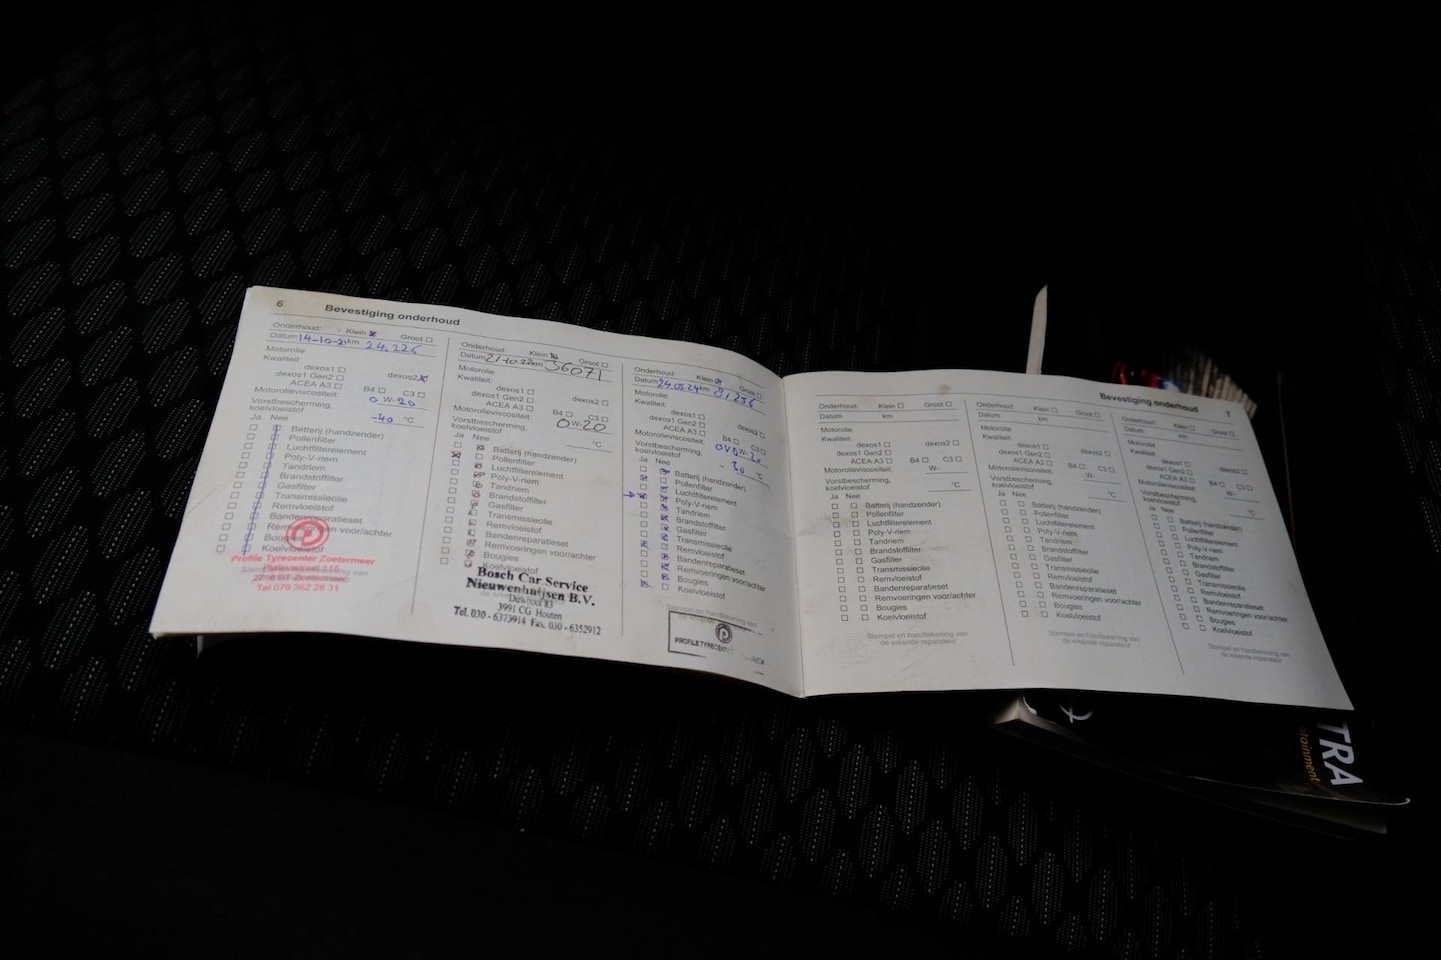 6 Bevestiging onderhoud
Onderhoud: Klein Groot
Datum 14-10-21 km 24.226
Motorolie
Kwaliteit:
dexos1
dexos2
dexos1 Gen2
ACEA A3 B4 C3
Motorolieviscositeit: 0 W- 20
Vorstbescherming,
koelvloeistof -40 °C
Ja Nee
Batterij (handzender)
Pollenfilter
Luchtfilterelement
Poly-V-riem
Tandriem
Brandstoffilter
Gasfilter
Transmissieolie
Remvloeistof
Bandenreparatieset
Remvoeringen voor/achter
Bougies
Koelvloeistof
Profile Tyrecenter Zoetermeer
2718 ST Zoetermeer
Tel 079 362 28 31
Onderhoud: Klein Groot
Datum 21-10-22 km 36071
Motorolie
Kwaliteit:
dexos1 dexos2
dexos1 Gen2
ACEA A3 B4 C3
Motorolieviscositeit: 0 W- 20
Vorstbescherming,
koelvloeistof °C
Ja Nee
Batterij (handzender)
Pollenfilter
Luchtfilterelement
Poly-V-riem
Tandriem
Brandstoffilter
Gasfilter
Transmissieolie
Remvloeistof
Bandenreparatieset
Remvoeringen voor/achter
Bougies
Koelvloeistof
Bosch Car Service
Nieuwenhuijsen B.V.
3991 CG Houten
Tel. 030 - 6373914 Fax. 030 - 6352912
Onderhoud: Klein Groot
Datum km
Motorolie
Kwaliteit:
dexos1
dexos1 Gen2 dexos2
ACEA A3 B4 C3
Motorolieviscositeit: W-
Vorstbescherming,
koelvloeistof °C
Ja Nee
Batterij (handzender)
Pollenfilter
Luchtfilterelement
Poly-V-riem
Tandriem
Brandstoffilter
Gasfilter
Transmissieolie
Remvloeistof
Bandenreparatieset
Remvoeringen voor/achter
Bougies
Koelvloeistof
Stempel en handtekening van
PROFILE TYRECENTER
Bevestiging onderhoud 7
Onderhoud: Klein Groot
Datum km
Motorolie
Kwaliteit:
dexos1 dexos2
dexos1 Gen2
ACEA A3 B4 C3
Motorolieviscositeit: W-
Vorstbescherming,
koelvloeistof °C
Ja Nee
Batterij (handzender)
Pollenfilter
Luchtfilterelement
Poly-V-riem
Tandriem
Brandstoffilter
Gasfilter
Transmissieolie
Remvloeistof
Bandenreparatieset
Remvoeringen voor/achter
Bougies
Koelvloeistof
Stempel en handtekening van
de erkende reparateur
Onderhoud: Klein Groot
Datum km
Motorolie
Kwaliteit:
dexos1 dexos2
dexos1 Gen2
ACEA A3 B4 C3
Motorolieviscositeit: W-
Vorstbescherming,
koelvloeistof °C
Ja Nee
Batterij (handzender)
Pollenfilter
Luchtfilterelement
Poly-V-riem
Tandriem
Brandstoffilter
Gasfilter
Transmissieolie
Remvloeistof
Bandenreparatieset
Remvoeringen voor/achter
Bougies
Koelvloeistof
Stempel en handtekening van
de erkende reparateur
Onderhoud: Klein Groot
Datum km
Motorolie
Kwaliteit:
dexos1
dexos1 Gen2 dexos2
ACEA A3 B4 C3
Motorolieviscositeit: W-
Vorstbescherming,
koelvloeistof °C
Ja Nee
Batterij (handzender)
Pollenfilter
Luchtfilterelement
Poly-V-riem
Tandriem
Brandstoffilter
Gasfilter
Transmissieolie
Remvloeistof
Bandenreparatieset
Remvoeringen voor/achter
Bougies
Koelvloeistof
Stempel en handtekening van
de erkende reparateur
TRA
tainment